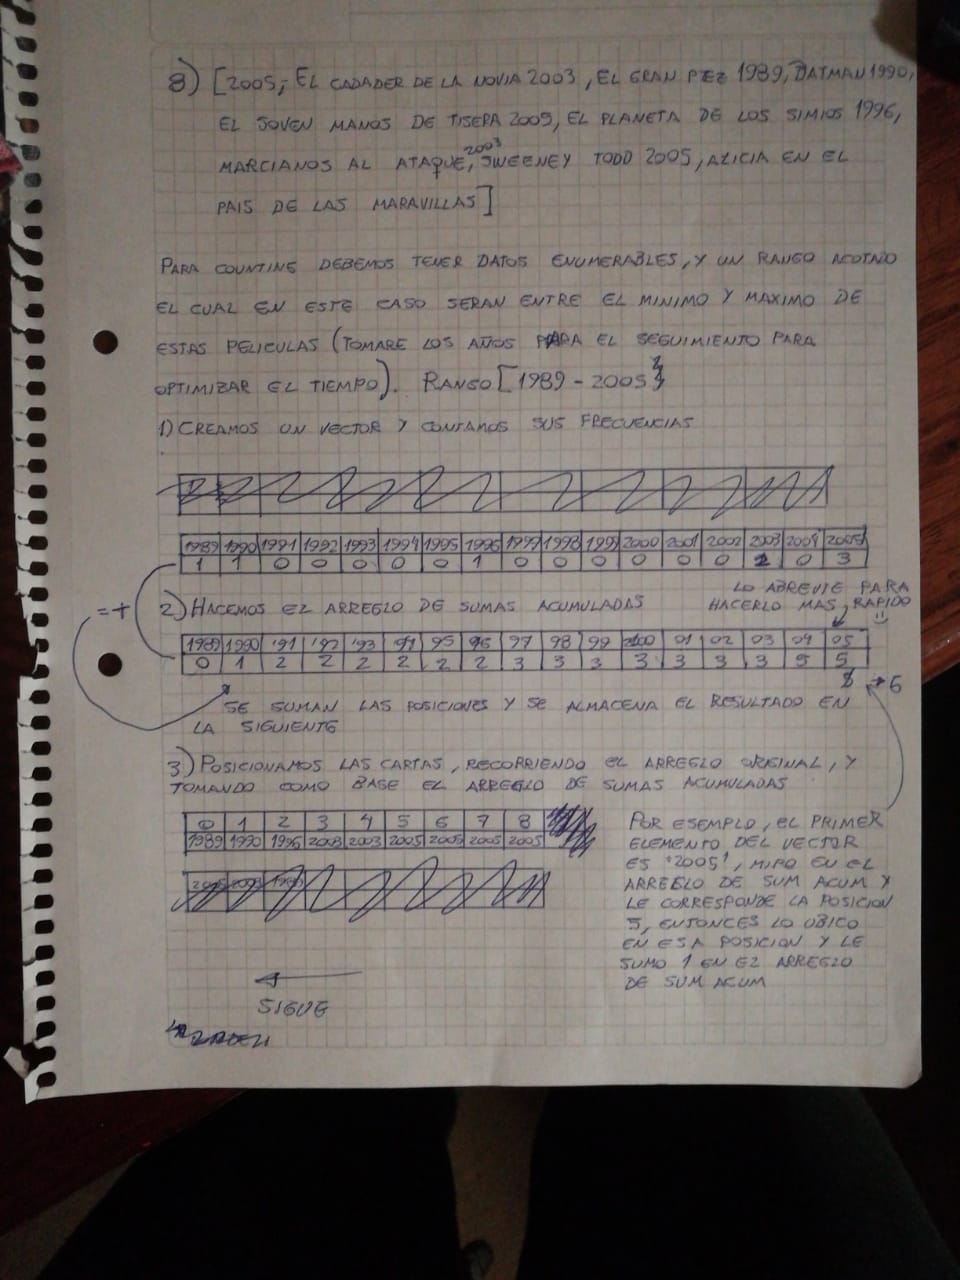 8) [2005, EL CADADER DE LA NOVIA 2003, EL GRAN PEZ 1989, BATMAN 1990,
EL JOVEN MANOS DE TISEPA 2005, EL PLANETA DE LOS SIMIOS 1996,
MARCIANOS AL ATAQUE, 2003 SWEENEY TODD 2005, ALICIA EN EL
PAIS DE LAS MARAVILLAS]
PARA COUNTING DEBEMOS TENER DATOS ENUMERABLES, Y UN RANGO ACOTADO
EL CUAL EN ESTE CASO SERAN ENTRE EL MINIMO Y MAXIMO DE
ESTAS PELICULAS (TOMARE LOS AÑOS PARA EL SEGUIMIENTO PARA
OPTIMIZAR EL TIEMPO). RANGO [1989 - 2005]
1) CREAMOS UN VECTOR Y CONTAMOS SUS FRECUENCIAS
1989 1990 1991 1992 1993 1994 1995 1996 1997 1998 1999 2000 2001 2002 2003 2004 2005
1 1 0 0 0 0 0 1 0 0 0 0 0 0 2 0 3
LO ABREVIE PARA
HACERLO MAS RAPIDO :)
=+ 2) HACEMOS EL ARREGLO DE SUMAS ACUMULADAS
1989 1990 '91 '92 '93 '94 95 96 97 98 99 2000 01 02 03 04 05
0 1 2 2 2 2 2 2 3 3 3 3 3 3 3 5 5
→ 6
SE SUMAN LAS POSICIONES Y SE ALMACENA EL RESULTADO EN
LA SIGUIENTE
3) POSICIONAMOS LAS CARTAS, RECORRIENDO EL ARREGLO ORIGINAL, Y
TOMANDO COMO BASE EL ARREGLO DE SUMAS ACUMULADAS
0 1 2 3 4 5 6 7 8
1989 1990 1996 2003 2003 2005 2005 2005 2005
POR ESEMPLO, EL PRIMER
ELEMENTO DEL VECTOR
ES '2005', MIRO EN EL
ARREGLO DE SUM ACUM Y
LE CORRESPONDE LA POSICION
5, ENTONCES LO UBICO
EN ESA POSICION Y LE
SUMO 1 EN EL ARREGLO
DE SUM ACUM
←
SIGUE